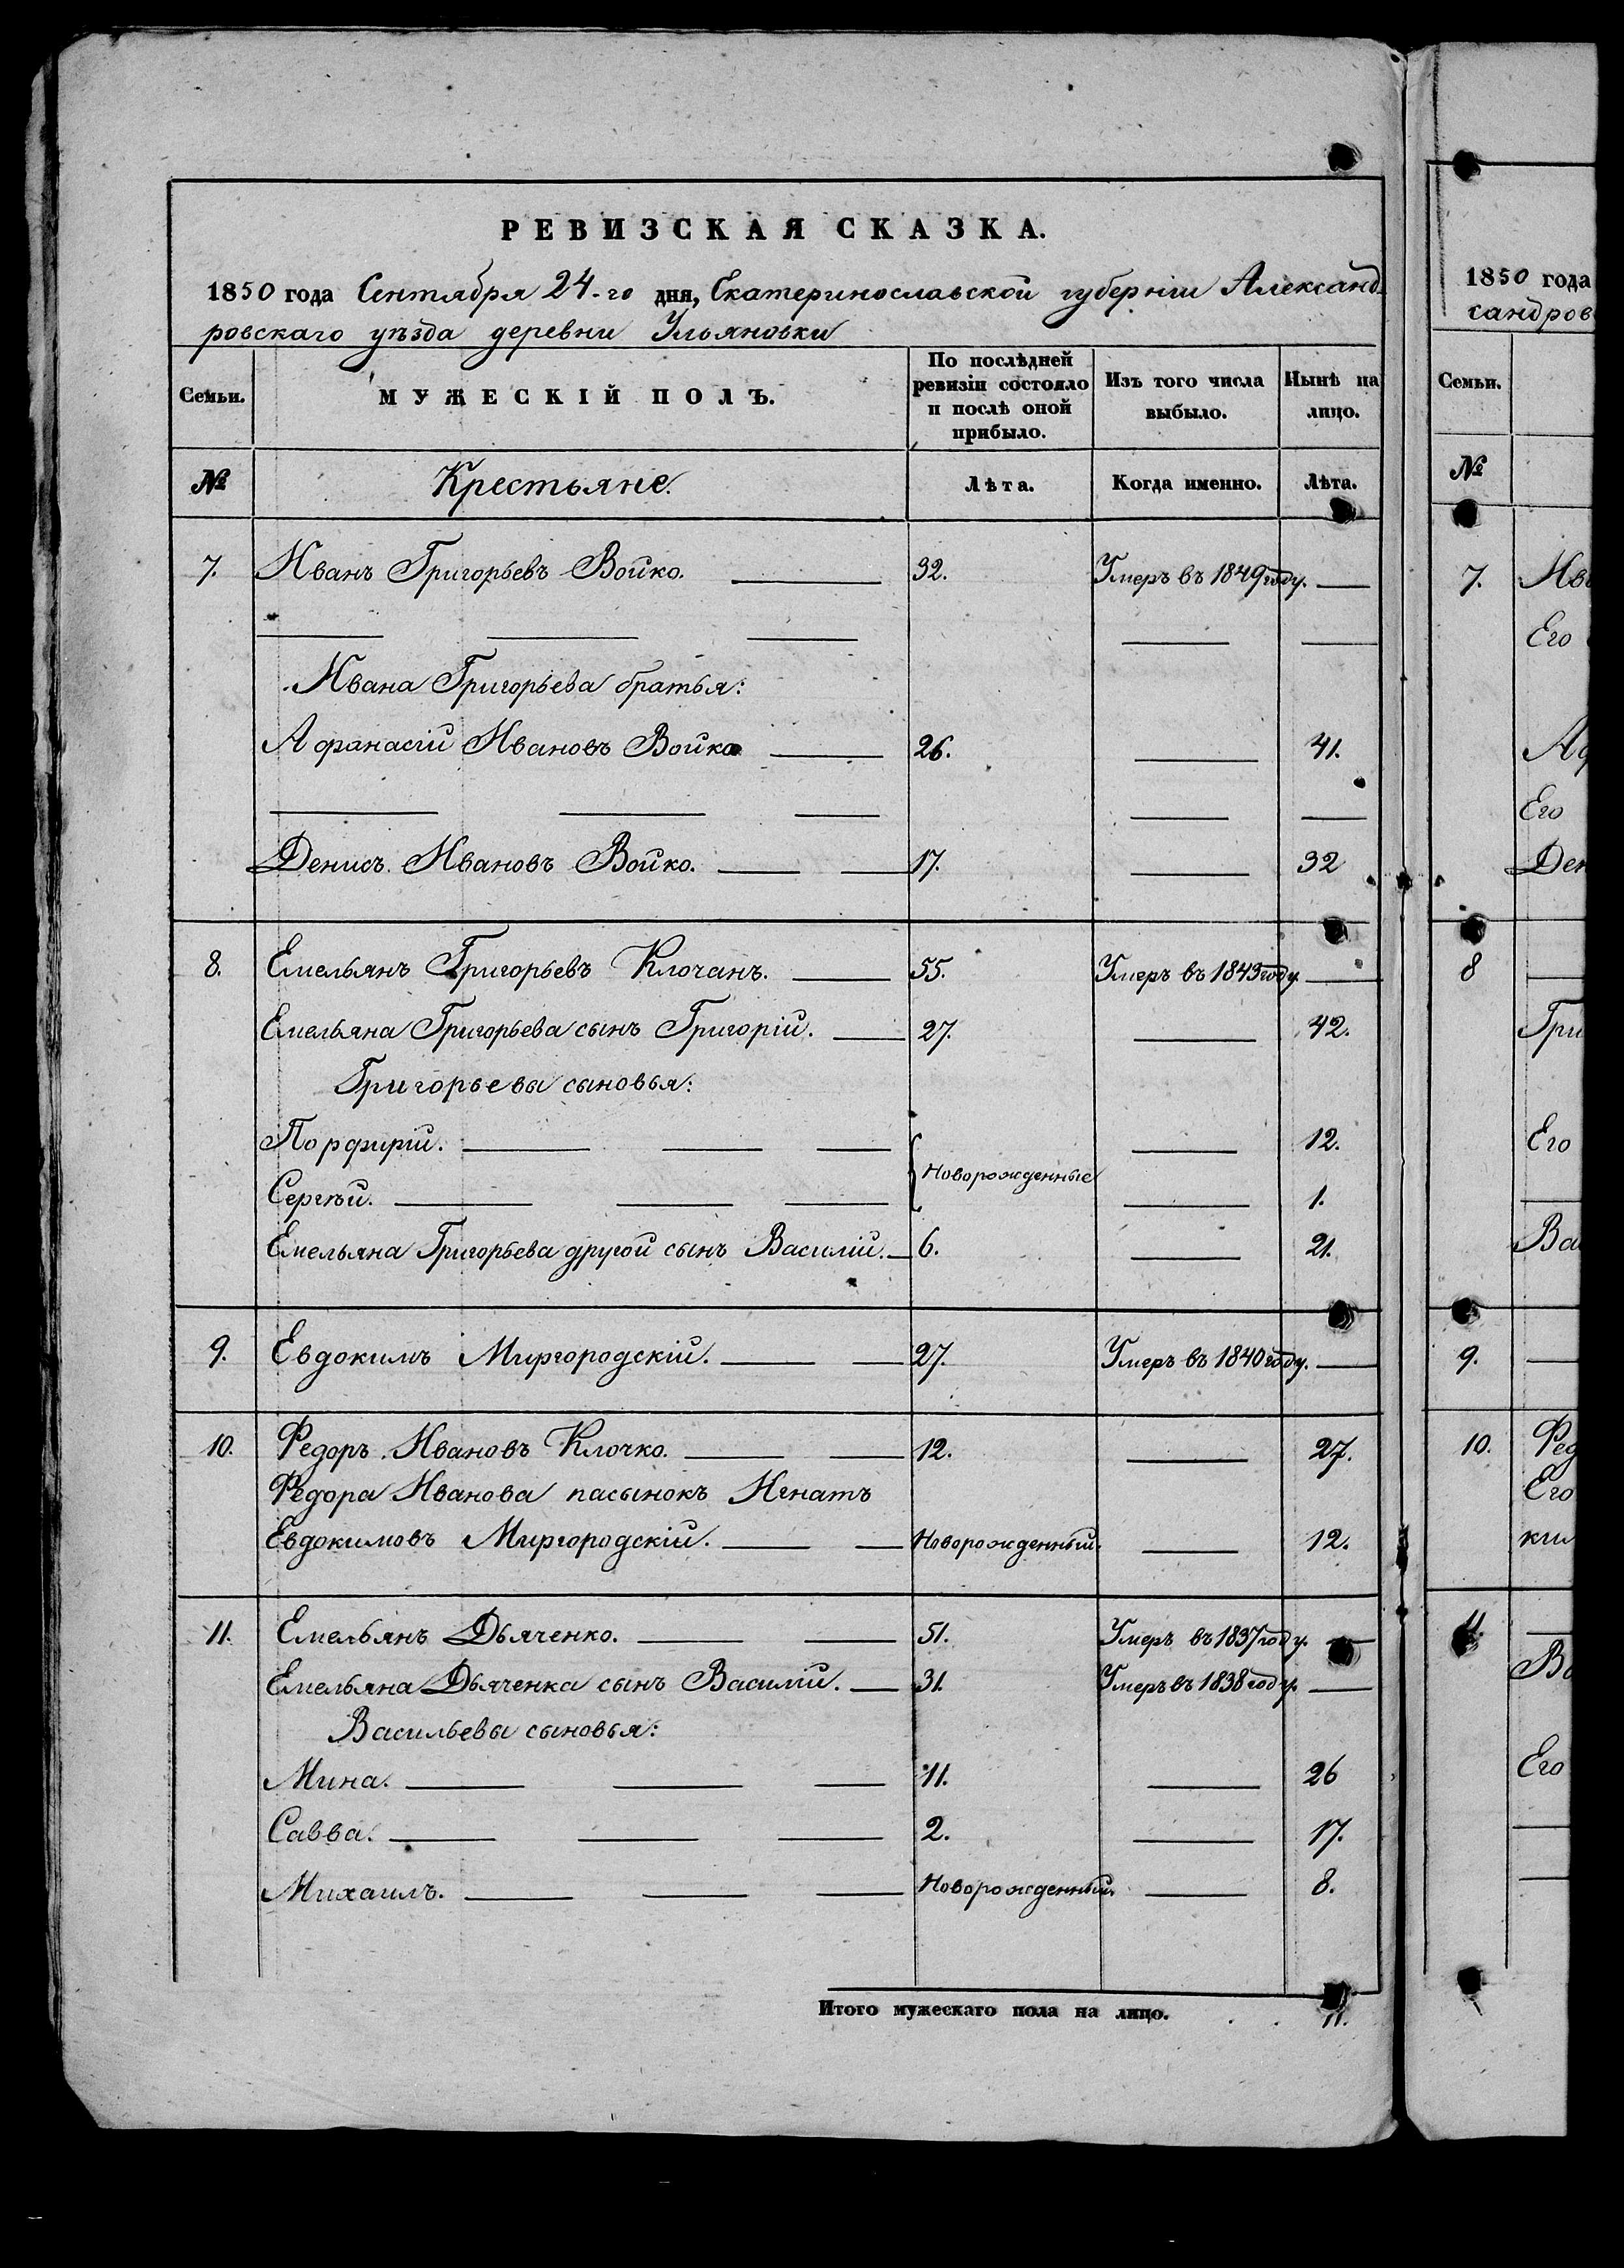 РЕВИЗСКАЯ СКАЗКА.
1850 года Сентября 24-го дня, Екатеринославской губерніи Александ-
ровскаго уѣзда деревни Ульяновки
Семьи. МУЖЕСКІЙ ПОЛЪ. По послѣдней ревизіи состояло и послѣ оной прибыло. Изъ того числа выбыло. Нынѣ на лицо.
№ Крестьяне. Лѣта. Когда именно. Лѣта.
7. Иванъ Григорьевъ Бойко. 32. Умеръ въ 1849 году.
Ивана Григорьева братья:
Афанасій Ивановъ Бойко 26. 41.
Денисъ Ивановъ Бойко. 17. 32
8. Емельянъ Григорьевъ Клочанъ. 55. Умеръ въ 1843 году.
Емельяна Григорьева сынъ Григорій. 27. 42.
Григорьевы сыновья:
Порфирій. 12.
Новорожденные
Сергѣй. 1.
Емельяна Григорьева другой сынъ Василій. 6. 21.
9. Евдокимъ Миргородскій. 27. Умеръ въ 1840 году.
10. Федоръ Ивановъ Клочко. 12. 27.
Федора Иванова пасынокъ Игнатъ
Евдокимовъ Миргородскій. Новорожденный. 12.
11. Емельянъ Дьяченко. 51. Умеръ въ 1837 году.
Емельяна Дьяченка сынъ Василій. 31. Умеръ въ 1838 году.
Васильевы сыновья:
Мина. 11. 26
Савва. 2. 17.
Михаилъ. Новорожденный. 8.
Итого мужескаго пола на лицо. 11.
1850 года
сандров
Семьи.
№
7. Ива
Его
Аф
Его
Ден
8
Гри
Его
Вас
9.
10. Фед
Его
ким
11.
Ва
Его